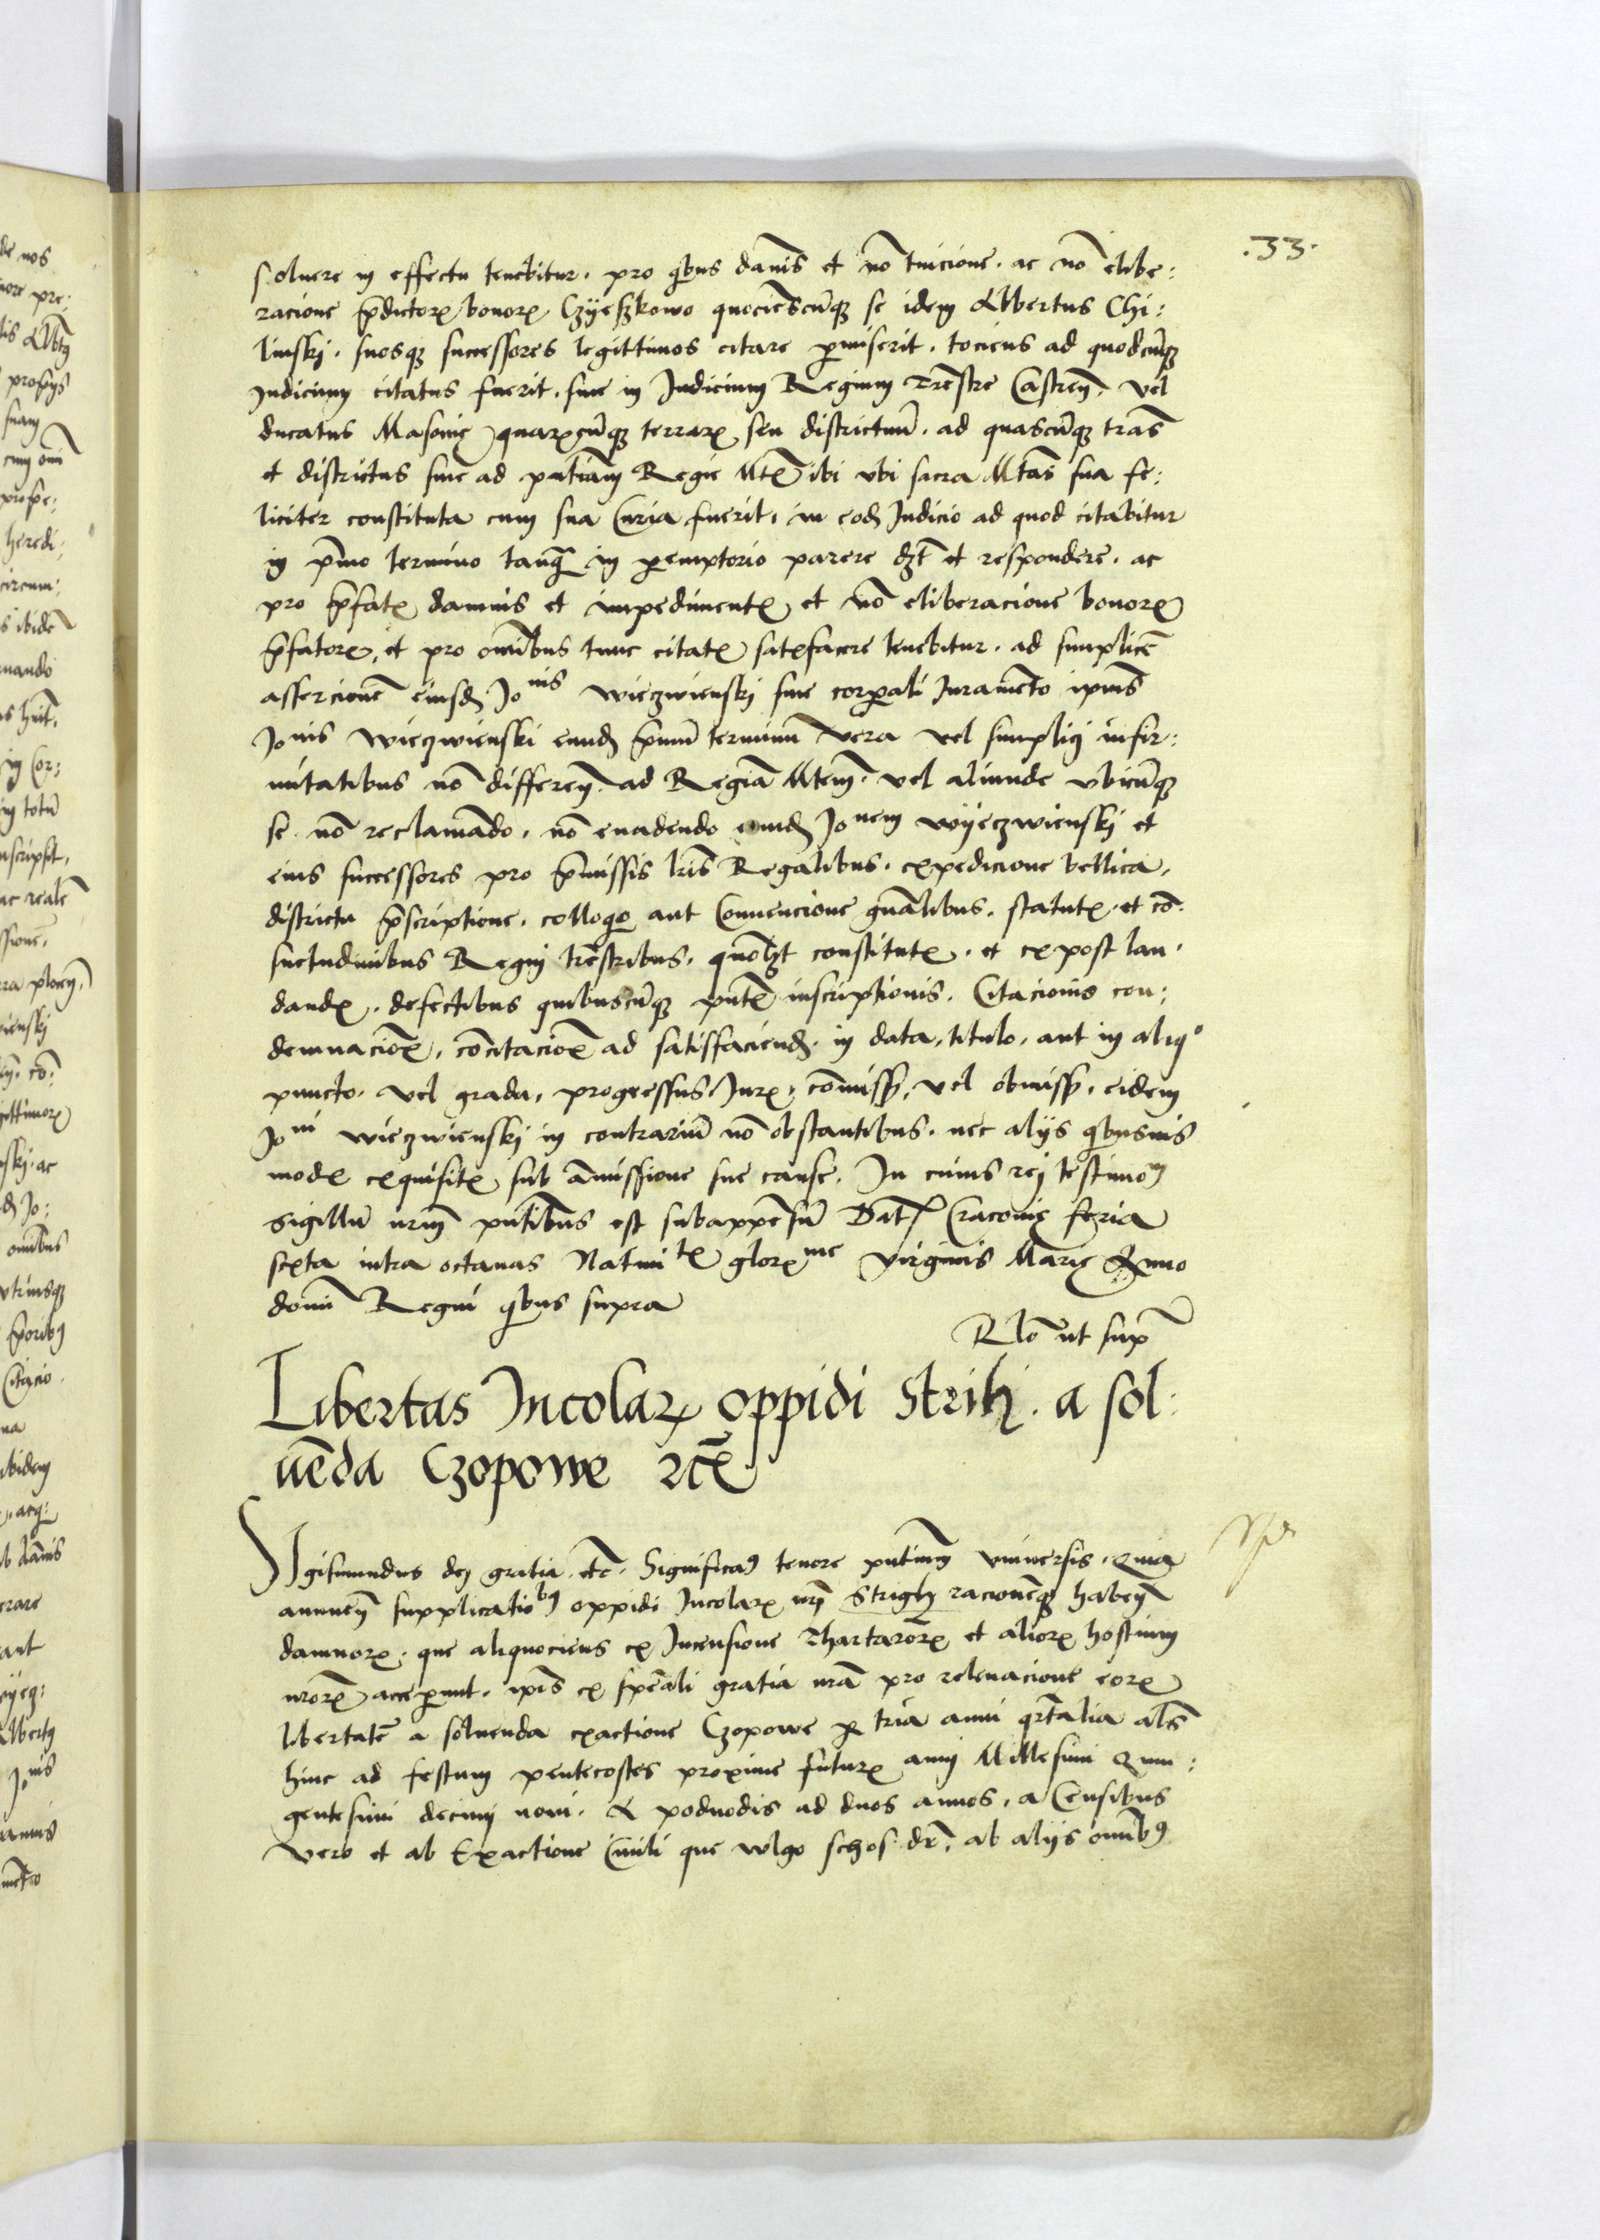 .33.
soluere in effectu tenebitur. pro qbus danis et nō tuicione. ac nō elibe:
racione pdictoꝝ bonoꝝ Czyeszkowo quociescūqꝫ se idem Albertus Chi:
linski. suosqꝫ successores legittimos citare pmiserit. tociens ad quodcūqꝫ
Iudicium citatus fuerit. siue in Iudicium Regium Trestre Castren. vel
ducatus Masouie quaꝝcūqꝫ terraꝝ seu districtuū. ad quascūqꝫ tras
et districtus siue ad pntiam Regie Mtis ibi vbi sacra Mtas sua fe:
liciter constituta cum sua Curia fuerit, in eodꝫ Iudicio ad quod citabitur
in pmo termino tanqꝫ in peremptorio parere dꝫt et respondere. ac
pro pfatꝭ damnis et impedimentꝭ et nō eliberacione bonoꝝ
pfatoꝝ, et pro omibus tunc citatꝭ satꝭfacere tenebitur. ad simplicē
assercionē eiusdꝫ Jonis wieczwienski siue corpali Iuramēto ipius
Jonis wieczwienski eundꝫ pmū terminū vera vel simplici infir:
mitatibus nō differen. ad Regiā Mtem. vel aliunde vbicūqꝫ
se nō reclamādo. nō euadendo eundꝫ Jonem wyeczwienski et
eius successores pro pmissis lris Regalibus. expedicione bellica,
districtu pscriptione. colloqo aut Conuencione gnalibus. statutꝭ et cō.
suetudinibus Regni trestribus. quōlꝫt constitutꝭ. et ex post lau.
dandꝭ. defectibus quibuscūqꝫ pntꝭ inscriptionis. Citacionis con:
demnacioꝭ. concitacioꝭ ad satisfaciendꝫ. in data, titulo, aut in aliqo
puncto. vel gradu, progressus Iurꝭ, cōmiss, vel obmiss, eidem
Joni wieczwienski in contrariū nō obstantibus. nec alijs qbusuis
modꝭ exquisitꝭ sub amissione sue cause. In cuius rei testimom
sigillū nrum pntibus est subappensū Datꝭ Cracouie feria
sexta intra octauas Natiuitꝭ glorꝭme virginis Marie Anno
domi Regni qbus supra
Rlo ut sup
Libertas Incolaꝝ oppidi Strih. a sol:
uēda Czopowe ꝛcꝭ
Sigismundus dei gratia. etc. Significaꝰ tenore pntium vniuersis. Quia
annuen supplicatiobꝰ oppidi Incolaꝝ nri Strigh racionēqꝫ haben
damnoꝝ. que aliquociens ex Incensione Thartaroꝝ et alioꝝ hostium
nroꝝ acceperunt. ipis ex speāli gratia nrā pro releuacione eoꝝ
libertatē a soluenda exactione Czopowe p tria anni qrtalia als
hinc ad festum pentecostes proxime futurꝭ anni Millesimi Quin:
gentesimi decimi noni. A podvodis ad duos annos, a Censibus
vero et ab Exactione Ciuili que wlgo schos dr, ab alijs omibꝰ